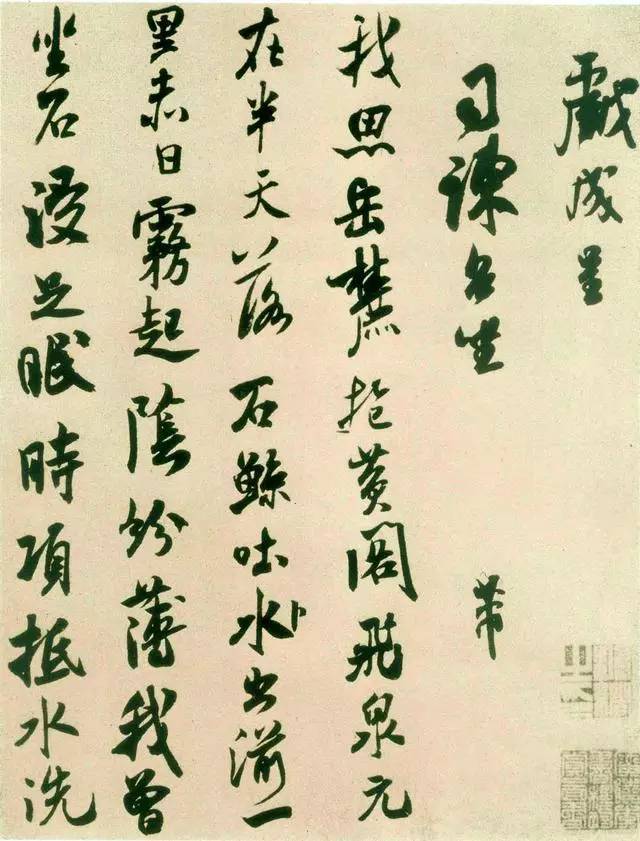 戲成呈
司諫台坐
芾
我思岳麓抱黃閣飛泉元
在半天落石鯨吐水出湔一
里赤日霧起陰紛薄我曾
坐石浸足眠時項抵水洗